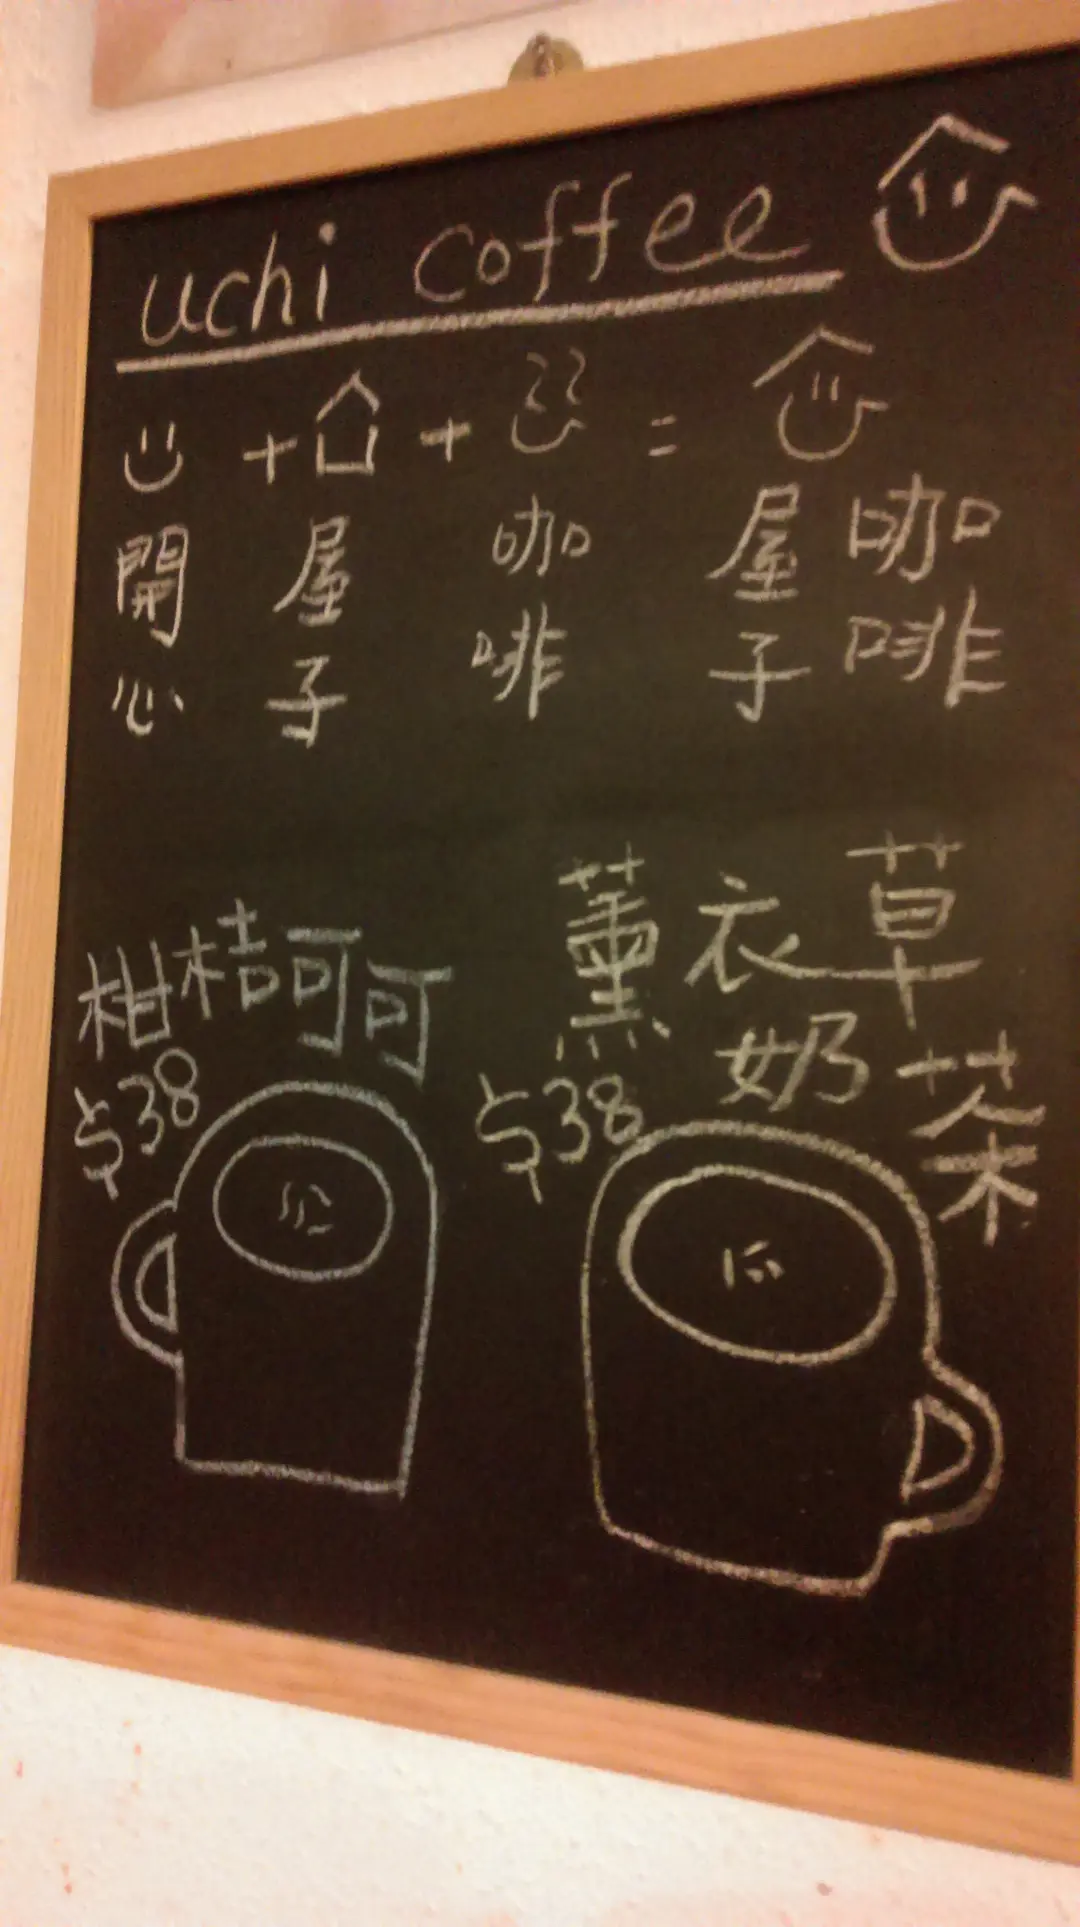 uchi coffee
+ + =
開心 屋子 咖啡 屋子 咖啡
柑桔可可
$38
薰衣草
奶茶
$38